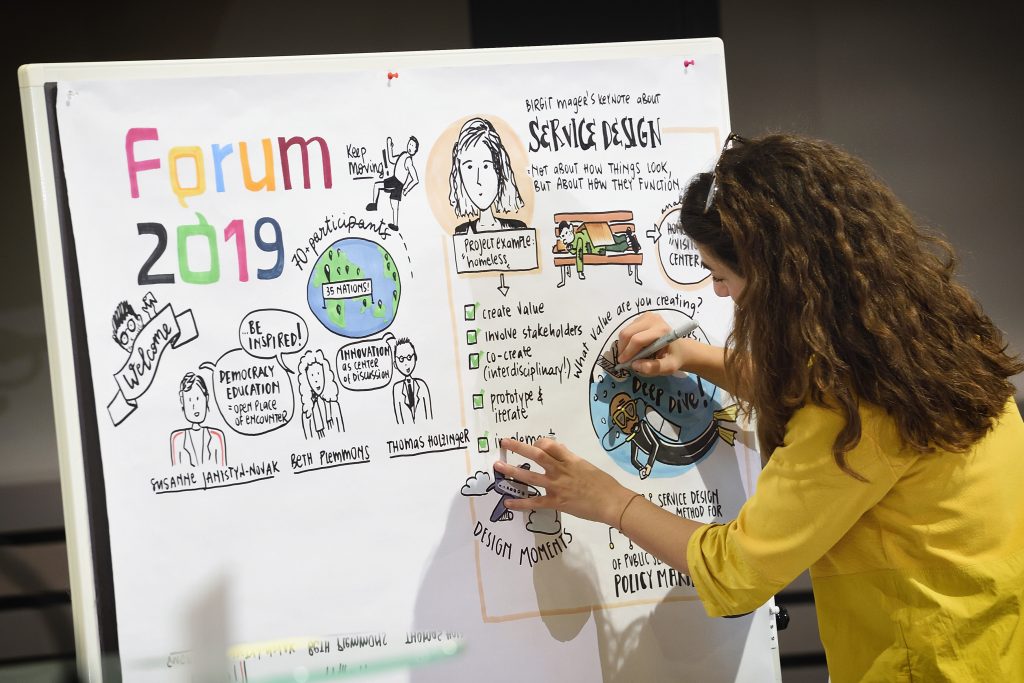 Forum
2019
Keep
moving!
70+ participants
35 NATIONS!
Welcome
BE
INSPIRED!
DEMOCRACY
EDUCATION
= OPEN PLACE
OF ENCOUNTER
INNOVATION
AS CENTER
OF DISCUSSION
SUSANNE JANISTYN-NOVAK
BETH PLEMMONS
THOMAS HOLZINGER
BIRGIT mager's KEYNOTE about
SERVICE DESIGN
= NOT ABOUT HOW THINGS LOOK,
BUT ABOUT HOW THEY FUNCTION
PROJECT EXAMPLE:
homeless
create value
involve stakeholders
co-create
(interdisciplinary!)
prototype &
iterate
implement
What value are you creating?
DEEP DIVE!
DESIGN MOMENTS
& SERVICE DESIGN
METHOD FOR
OF PUBLIC
BETH PLEMMONS